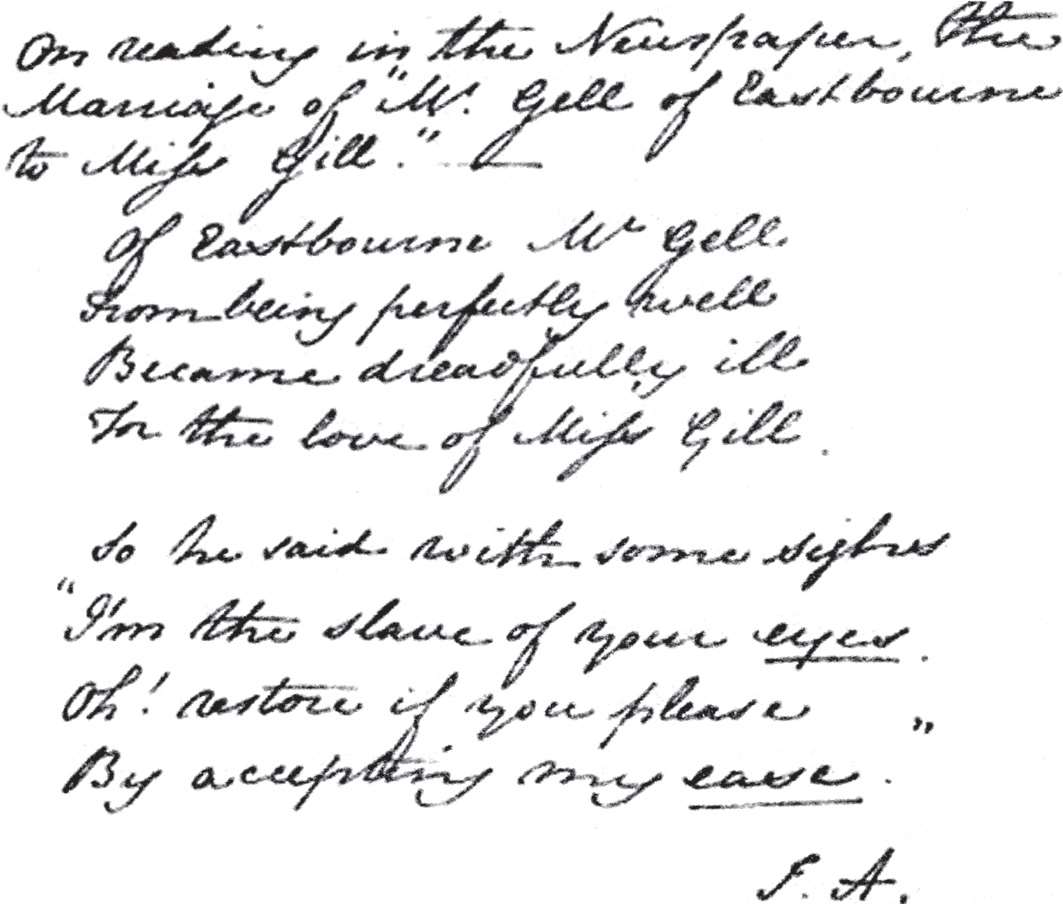 On reading in the Newspaper, the
Marriage of "Mr. Gell of Eastbourne
to Miss Gill." —
Of Eastbourne Mr Gell
From being perfectly well
Became dreadfully ill
For the love of Miss Gill.
So he said with some sighs
"I'm the slave of your eyes.
Oh! restore if you please
By accepting my ease."
J. A.